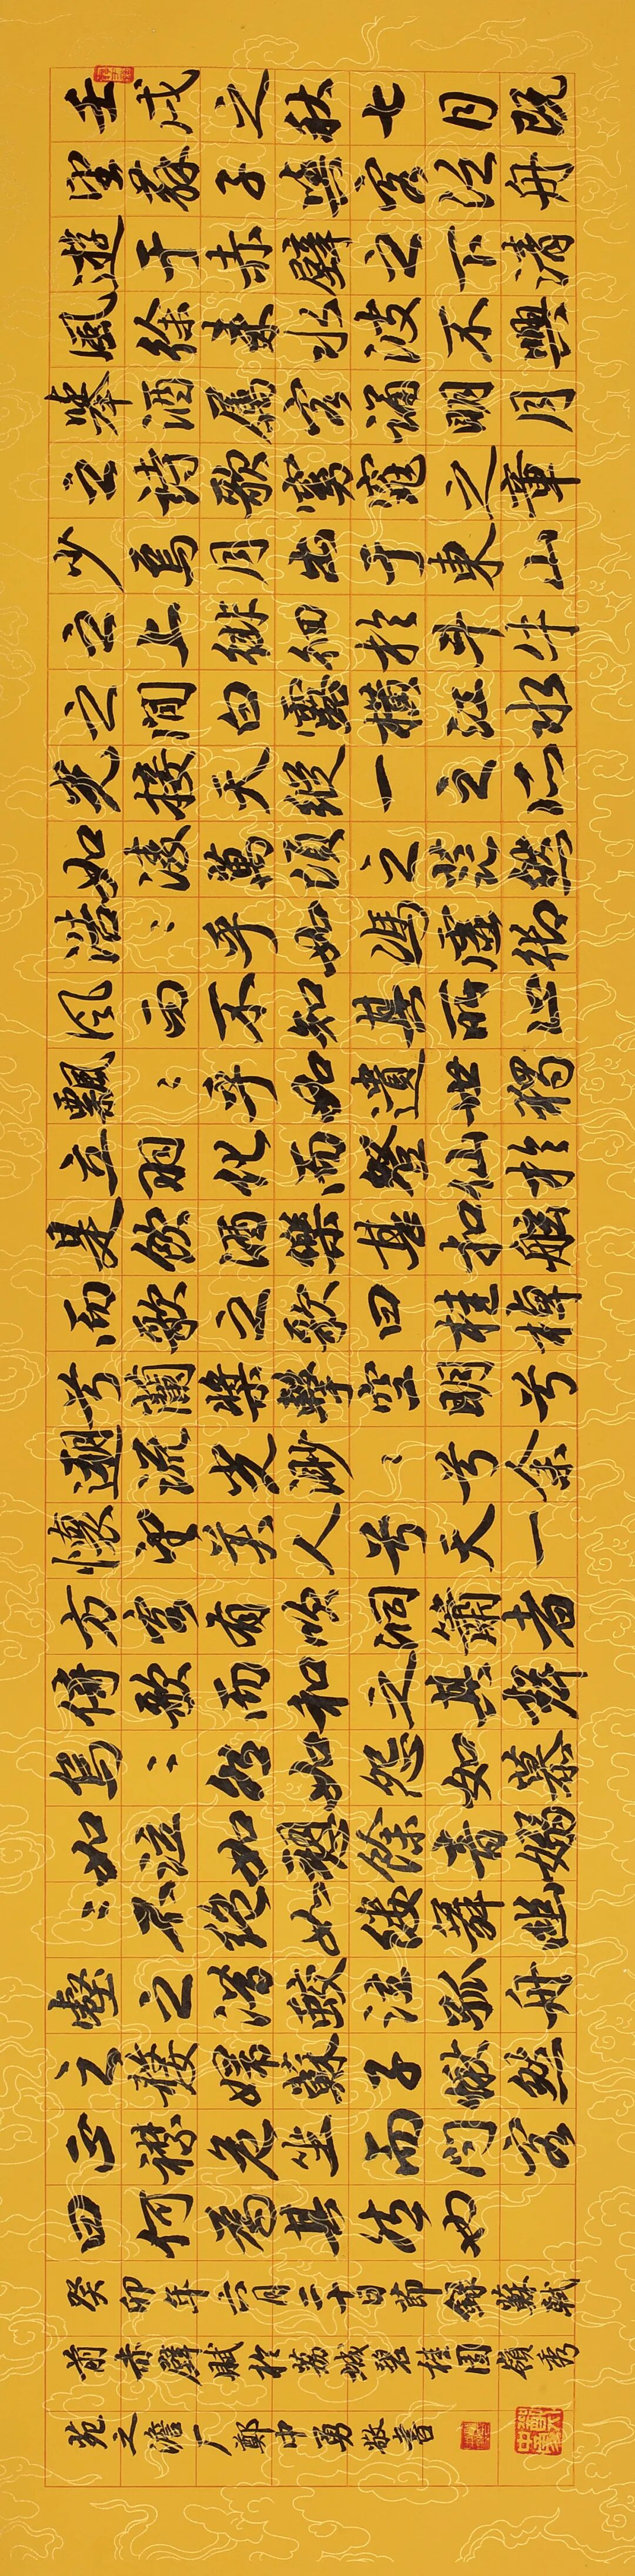 壬戌之秋七月既
望蘇子與客泛舟
遊于赤壁之下清
風徐來水波不興
舉酒屬客誦明月
之詩歌窈窕之章
少焉月出于東山
之上徘徊於斗牛
之間白露橫江水
光接天縱一之所
如淩萬頃之茫然
浩〻乎如馮虛御
風而不知其所止
飄〻乎如遺世獨
立羽化而登仙於
是飲酒樂甚扣舷
而歌之歌曰桂棹
兮蘭槳擊空明兮
遡流光渺〻兮余
懷望美人兮天一
方客有吹洞簫者
倚歌而和之其聲
烏〻然如怨如慕
如泣如訴餘音嫋
〻不絕如縷舞幽
壑之潛蛟泣孤舟
之嫠婦蘇子愀然
正襟危坐而問客
曰何為其然也
癸卯年六月二十日節錄蘇軾
前赤壁賦於荔城碧桂園領秀
苑之澹厂鄭中勇敬書